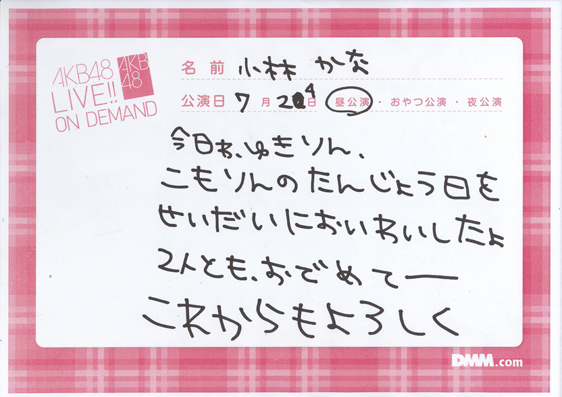 AKB48
LIVE!!
ON DEMAND
AKB
48
名前 小林 かな
公演日 7月 24日 昼公演・おやつ公演・夜公演
今日ゎ、ゆきりん、
こもりんのたんじょう日を
せいだいにおいわいしたよ
2人とも、おでめてー
これからもよろしく
DMM.com